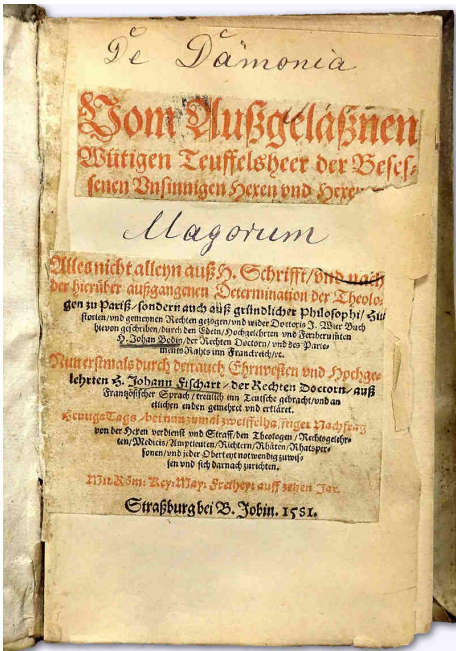 De Dämonia
Vom Außgelaßnen
Wütigen Teuffelsheer der Beses-
senen Vnsinnigen Hexen vnd Hexen
Magorum
Alles nicht alleyn auß H. Schrifft / vnd nach
der hierüber außgangenen Determination der Theolo-
gen zu Pariß / sondern auch auß gründlicher Philosophi / Hi-
storien / vnd gemeynen Rechten gezogen / vnd wider Doctoris J. Wier Buch
hievon geschriben / durch den Edeln / Hochgelehrten vnd Fernberuͤmten
H. Johan Bodin / der Rechten Doctorn / vnd des Parle-
ments Rahts inn Franckreich / ꝛc.
Nun erstmals durch den auch Ehrnvesten vnd Hochge-
lehrten H. Johann Fischart / der Rechten Doctorn / auß
Frantzösischer Sprach / treulich inn Teutsche gebracht / vnd an
etlichen enden gemehret vnd erkläret.
Heutigs Tags / bei nun zumal
von der Hexen verdienst vnd Straff / den Theologen / Rechtsgelehr-
ten / Medicis / Amptleuten / Richtern / Rhäten / Rhatsper-
sonen / vnd jder Oberkeyt notwendig zuwis-
sen vnd sich darnach zurichten.
Mit Röm: Key: May: Freiheyt auff zehen Jar.
Straßburg bei B. Jobin. 1581.